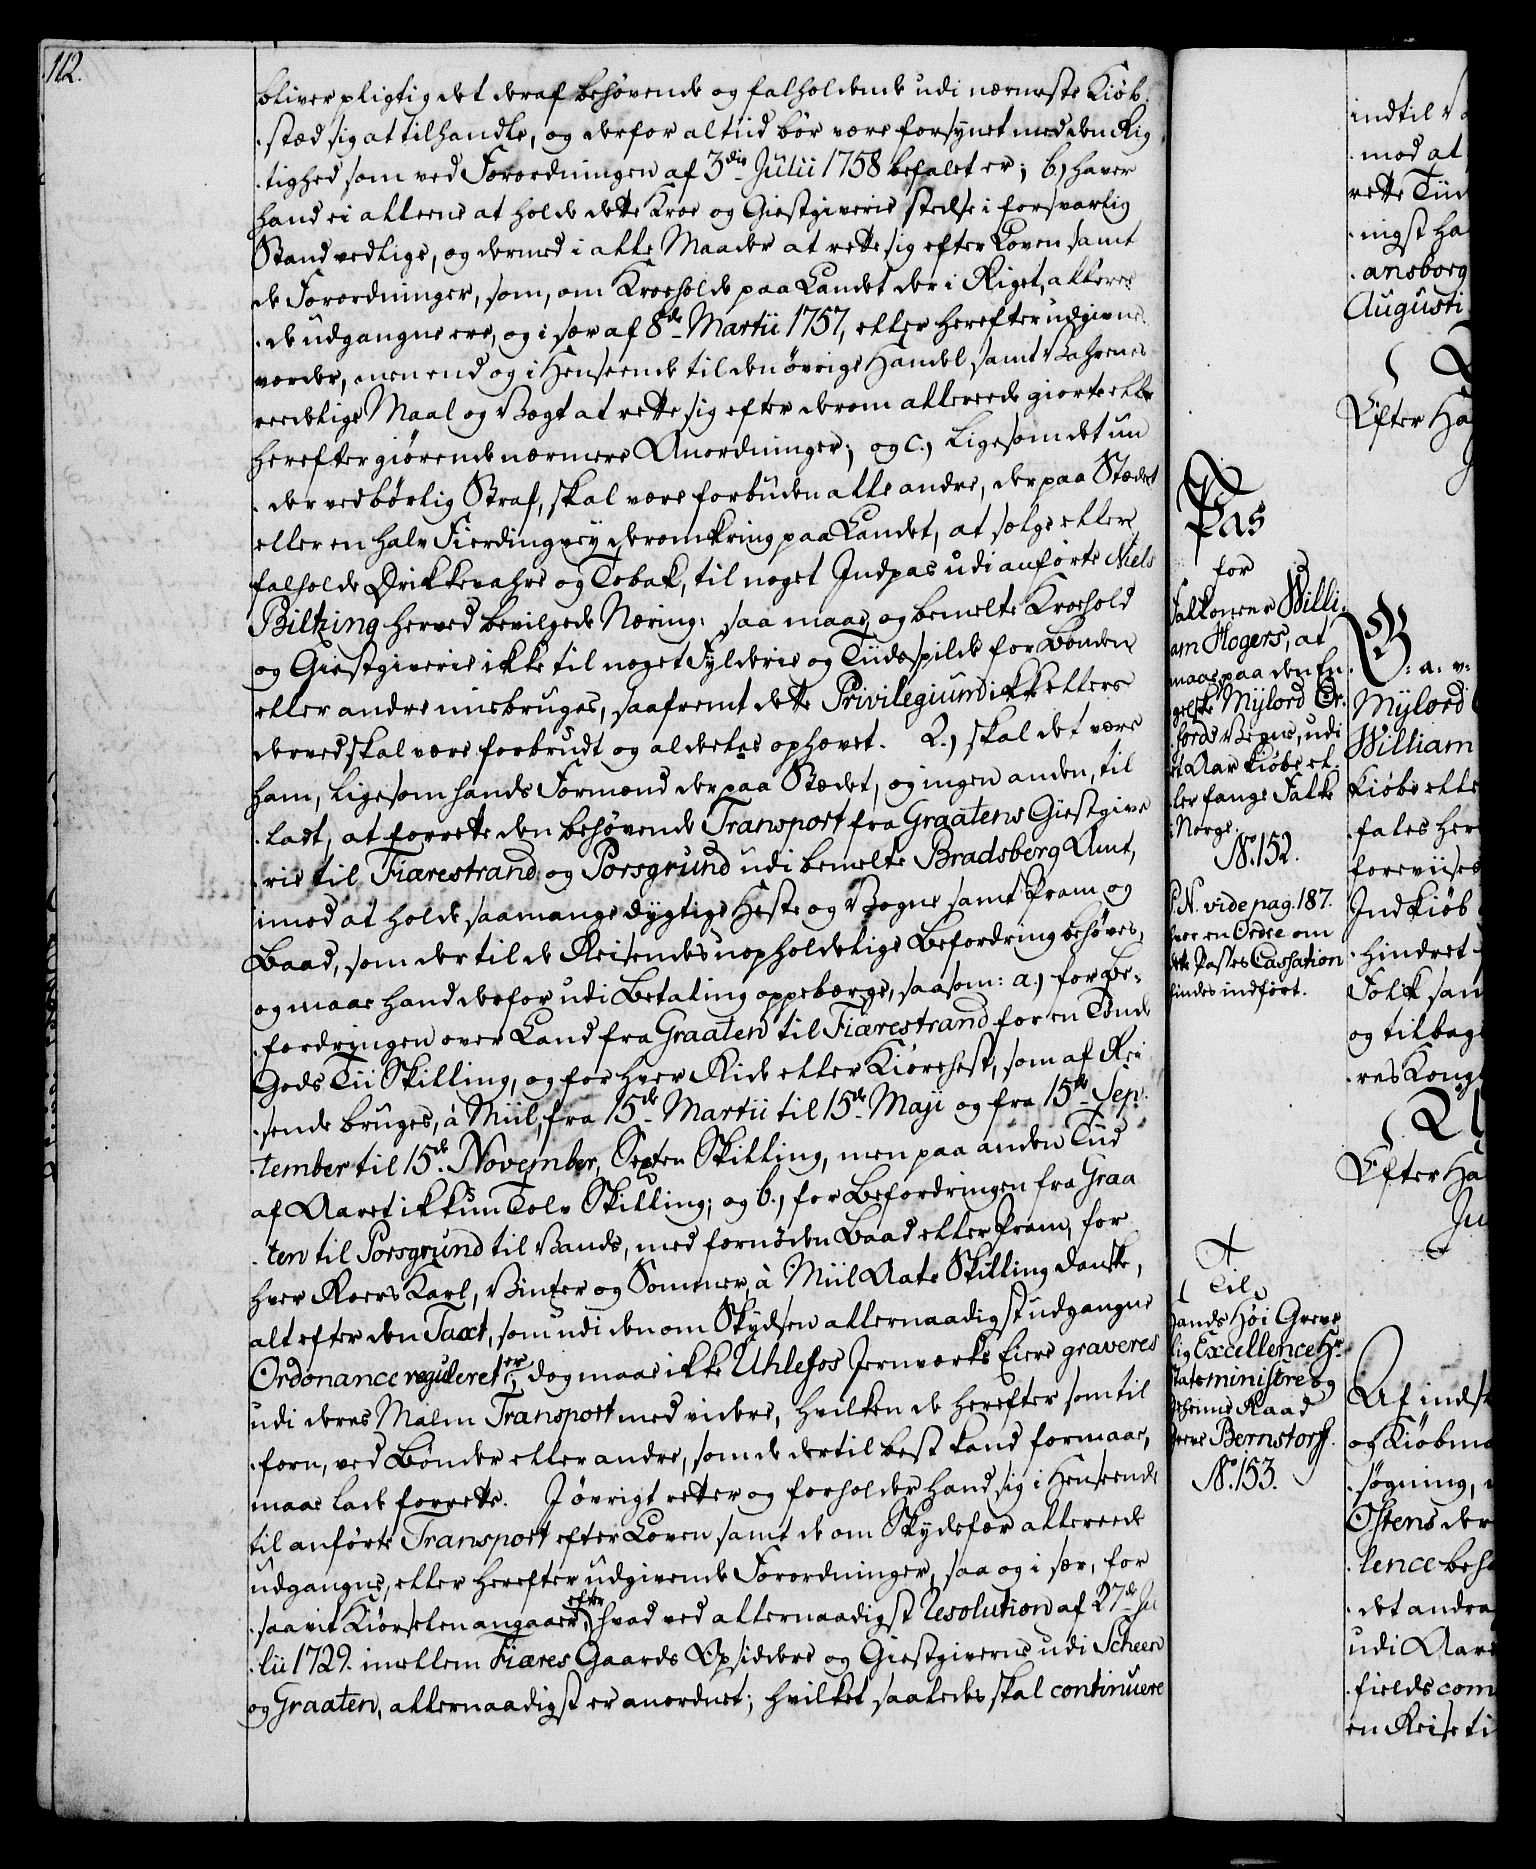 112.
bliver pligtig det deraf behøvende og falholdende udi nærmeste Kiøb-
stæd sig at tilhandle, og derfor altiid bør være forsynet med den Rig-
tighed som ved Forordningen af 3die Julii 1758 befalet er; b.) haver
hand ei alleene at holde dette Kroe og Giestgiverie stedse i forsvarlig
Stand vedlige, og dermed i alle Maader at rette sig efter Loven samt
de Forordninger, som, om Kroehold paa Landet der i Riget, allere-
de udgangne ere, og i sær af 8de Martii 1757, eller herefter udgivne
vorder, men end og i Henseende til den øvrige Handel, samt Vahrenes
reedelige Maal og Vægt at rette sig efter derom allereede giorte eller
herefter giørende nærmere Anordninger; og c.) ligesom det un-
der vedbørlig Straf, skal være forbuden alle andre, der paa Stædet
eller en halv Fierdingvey deromkring paa Landet, at sælge eller
falholde Drikkevahre og Tobak, til noget Indpas udi anførte Niels
Biltzing herved bevilgede Næring: saa maae og bemelte Kroehold
og Giestgiverie ikke til noget Fylderie og Tiidsspilde for Bonden
eller andre misbruges, saafremt dette Privilegium ikke ellers
derved skal være forbrudt og aldeeles ophævet. 2.) skal det være
ham, ligesom hands Formænd der paa Stædet, og ingen anden, til-
ladt, at forrette den behøvende Transport fra Graatens Giestgive-
rie til Fiærestrand og Porsgrund udi bemelte Bradsberg Amt,
imod at holde saamange dygtige Heste og Vogne samt Pram og
Baad, som der til de Reisendes uopholdelige Befordring behøves,
og maae hand derfor udi Betaling oppebærge, saasom: a.) for Be-
fordringen over Land fra Graaten til Fiærestrand for en Tønde
Gods Tii Skilling, og for hver Ride eller Kiørehest, som af Rei-
sende bruges, à Miil, fra 15de Martii til 15de Maji og fra 15de Sep-
tember til 15de November, Sexten Skilling, men paa anden Tiid
af Aaret ikkun Tolv Skilling; og b.) for Befordringen fra Graa-
ten til Porsgrund til Vands, med fornøden Baad eller Pram, for
hver Roers Karl, Vinter og Sommer, à Miil Aate Skilling danske,
alt efter den Taxt, som udi den om Skydsen allernaadigst udgangne
Ordonance reguleret er; dog maae ikke Uhlefos Jernværks Eiere graveres
udi deres Malm Transport med videre, hvilken de herefter som til-
forn, ved Bønder eller andre, som de dertil best kand formaae,
maae lade forrette. I øvrigt retter og forholder hand sig i Henseende
til anførte Transport efter Loven samt de om Skydsfær allereede
udgangne, eller herefter udgivende Forordninger, saa og i sær, for
saavit Kiørselen angaaer, efter hvad ved allernaadigst Resolution af 27de Ju-
lii 1729. imellem Fiæres Gaards Opsiddere og Giestgiverne udi Scheen
og Graaten, allernaadigst er anordnet; hvilket saaledes skal continuere
Pas
for
Falkoneer Willi-
am Flogers, at
maae paa den En-
gelske Mylord Or-
fords Vegne, udi
et Aar kiøbe el-
ler fange Falke
i Norge.
No. 152.
P.N. vide pag. 187.
hvor en Ordre om
dette Passes Cassation
findes indført.
Til
Hands Høi Greve-
lig Excellence Hr.
Statsministre og
Geheime Raad
Greve Bernstorff.
No. 153.
indtil
mod at
rette Tiid
nigst ha
ansborg
Augusti
Efter Ha
G: a. v:
Mylord
William
kiøbe elle
fales her
foreviises
Indkiøb
hindret
Folck sam
og tilbag
res Kong
Efter Ha
Ju
Af indst
og Kiøbm
søgning,
Ostens der
lence beh
det andra
udi Aare
fields com
en Reise ti